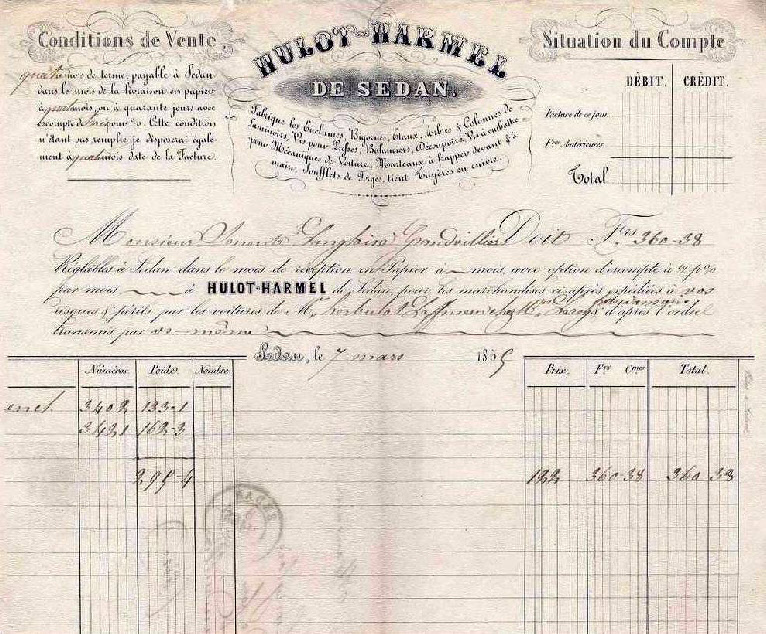 Conditions de Vente
quatre mois de terme, payable à Sedan
dans le mois de la livraison en papiers
à mois, ou à quarante jours avec
escompte de pour %. Cette condition
n'étant pas remplie je disposerai égale-
ment à mois date de la Facture.
HULOT-HARMEL
DE SEDAN,
Fabrique les Enclumes, Bigornes, Étaux, Arbres & Colonnes de
Laminoirs, Vis pour Presses, Balanciers,
pour Mécaniques de Voiture, Marteaux à frapper devant & à
main, Soufflets de Forges, tient Tuyères en cuivre.
Situation du Compte
DÉBIT. CRÉDIT.
Facture de ce jour
Fres Antérieures
Total
Monsieur Grandvilliers Doit Frs 360-38
Réglables à Sedan dans le mois de réception en Papier à mois, avec option d'escompte à % p%
par mois à HULOT-HARMEL de Sedan pour les marchandises ci-après expédiées à vos
risques & périls par les voitures de Mr d'après l'ordre
transmis par vs même
Sedan, le 7 mars 1855
Numéros Poids Nombre Prix Frs Cmes Total
3402 133-1
3421 162-3
295-4 122 360-38 360 38